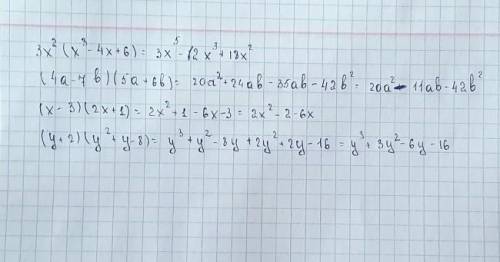 3x² (x³ - 4x + 6) = 3x⁵ - 12x³ + 18x²
(4a - 7b)(5a + 6b) = 20a² + 24ab - 35ab - 42b² = 20a² - 11ab - 42b²
(x - 3)(2x + 1) = 2x² + 1 - 6x - 3 = 2x² - 2 - 6x
(y + 2)(y² + y - 8) = y³ + y² - 8y + 2y² + 2y - 16 = y³ + 3y² - 6y - 16